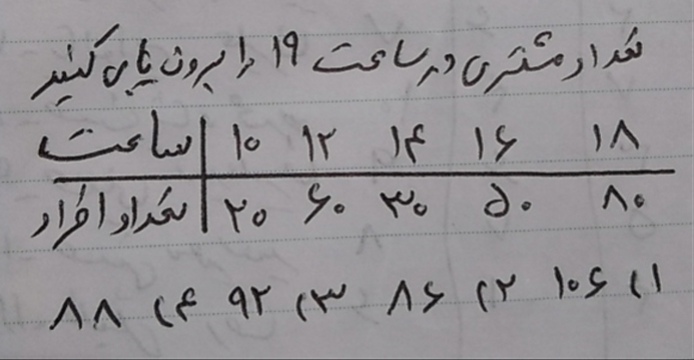 تعداد مشتری در ساعت ۱۹ را برون یابی کنید
ساعت | ۱۰ ۱۲ ۱۴ ۱۶ ۱۸
تعداد افراد | ۲۰ ۶۰ ۳۰ ۵۰ ۸۰
۱) ۱۰۶ ۲) ۸۶ ۳) ۹۲ ۴) ۸۸